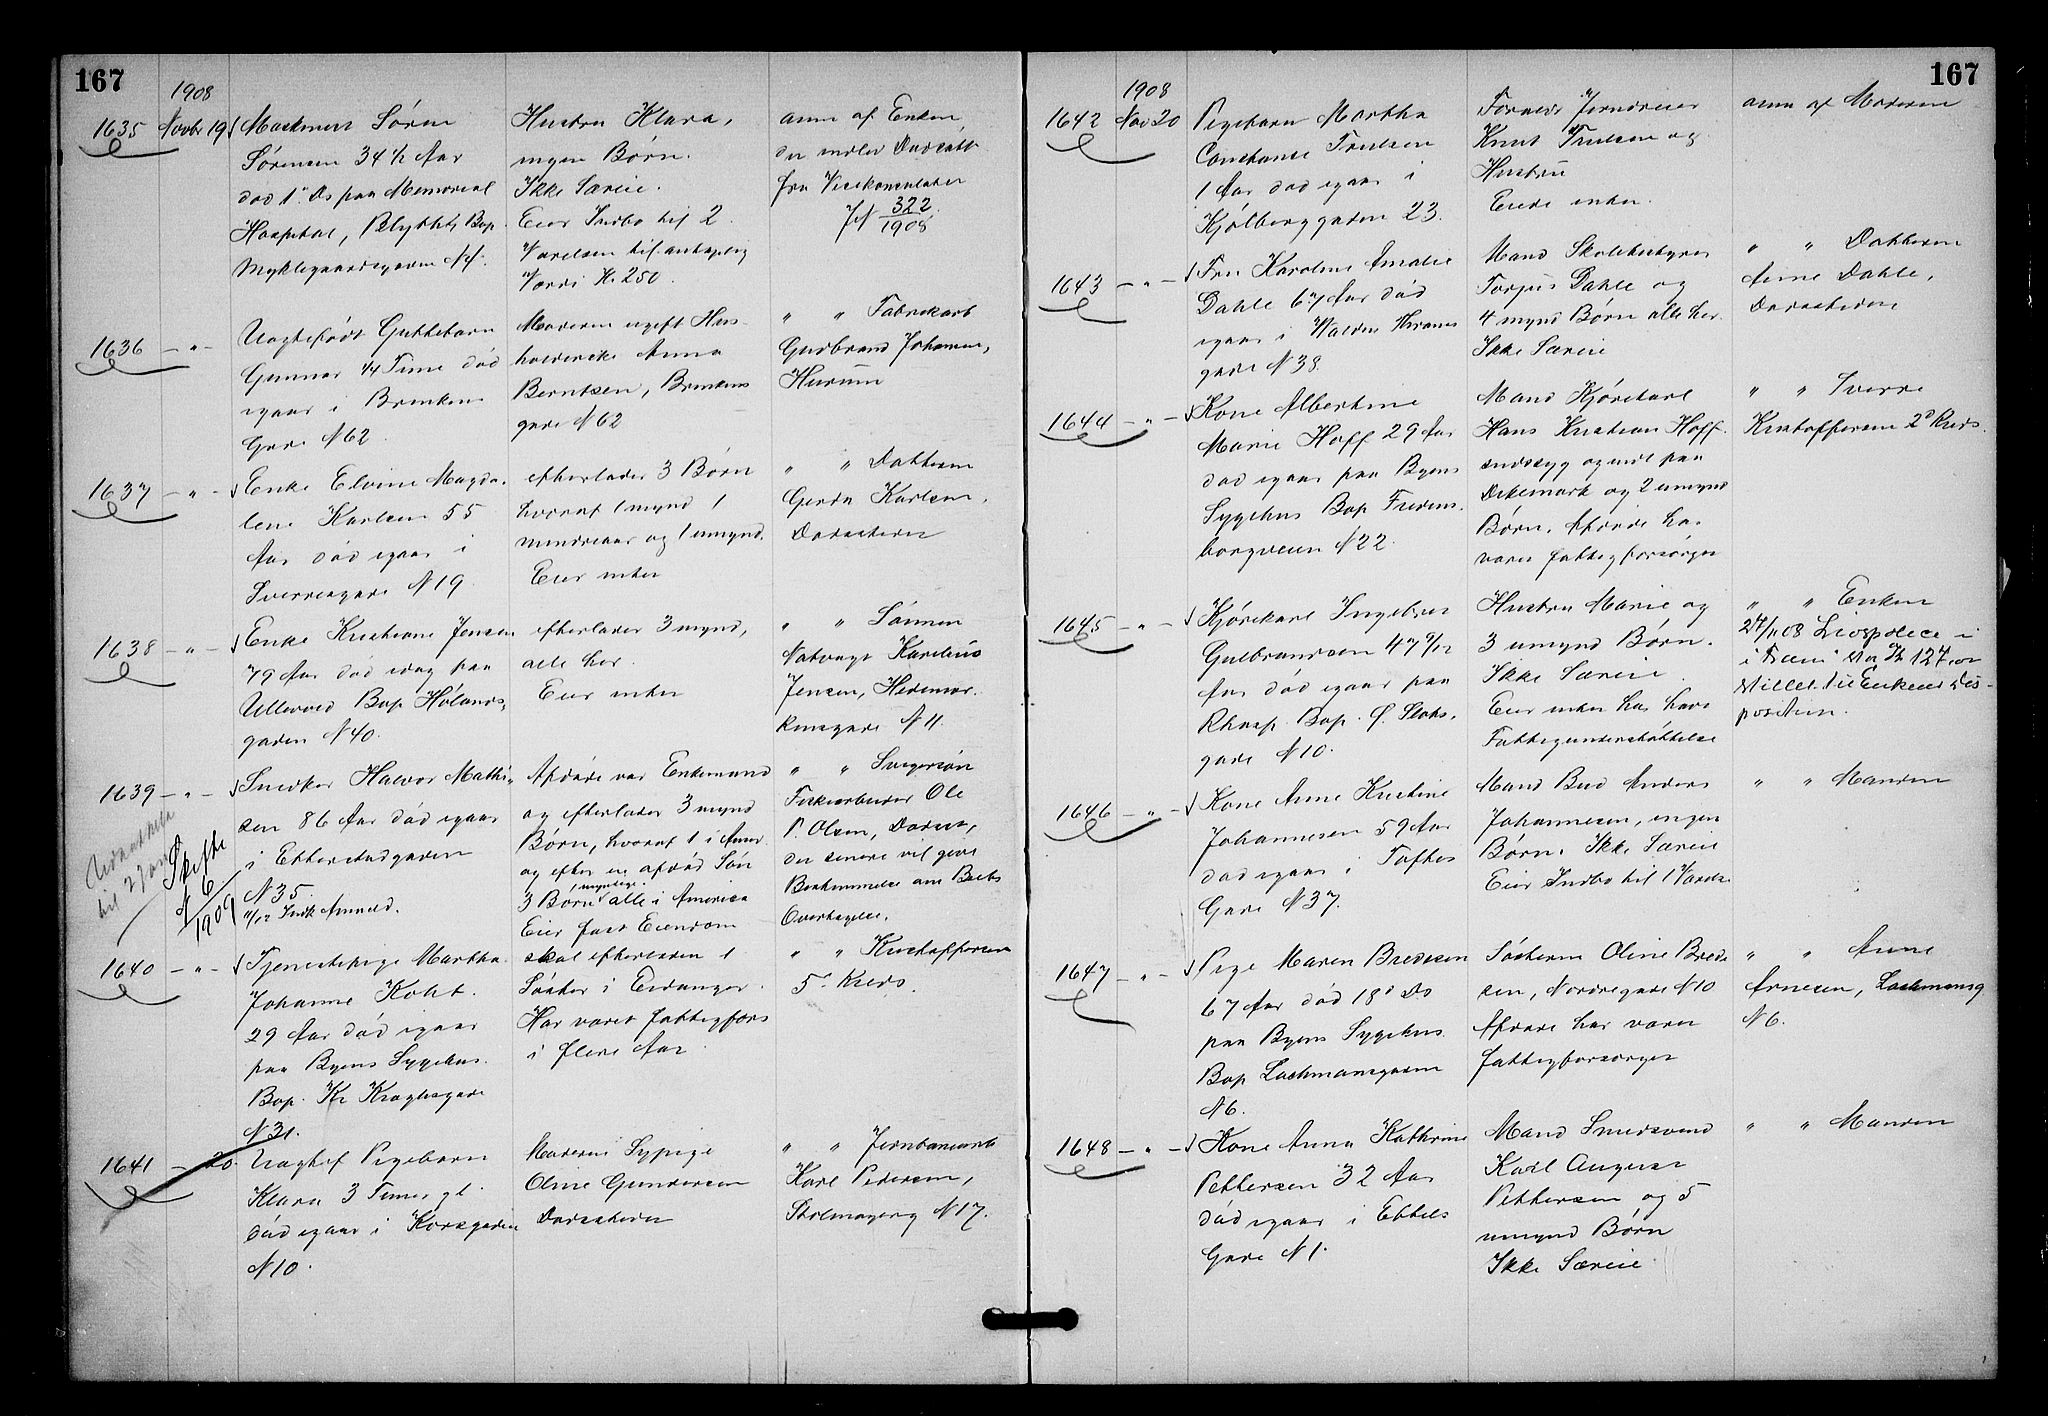 167
1908
1635 Novbr 19
Maskinist Søren
Sørensen 34 1/2 Aar
død 1' Ds paa Memorial
Hospital, Blythh, Bop.
Hustru Klara,
ingen Børn.
Ikke Særeie.
Eier Indbo til 2
Værelser til antagelig
Værdi Kr 250.
anm af Enken
der indlev Dødsatt
fra Vicekonsulatet
Jf 322/1908
1636 — " —
Uægtefødt Guttebarn
Gunnar 1/4 Time død
igaar i Brinkens
Gade N 62
Moderen ugift Hus-
holderske Anna
Berntsen, Brinkens
gade N 62
" " Fabrikarb
Gudbrand Johansen,
Hurum
1637 — " —
Enke Elvine Magda
lene Karlsen 55
Aar død igaar i
Sverresgade N 19
efterlader 3 Børn
hvoraf 1 mynd 1
mindreaar og 1 umynd.
Eier intet
" " Datteren
Gerda Karlsen,
Dødsstedet
1638 — " —
Enke Kristiane Jensen
79 Aar død idag paa
Ullevold Bop Hølands,
gaden N 40.
efterlader 3 mynd,
alle her.
Eier intet
" " Sønnen
Natvagt Karelius
Jensen, Hedemar.
kensgade N 11.
1639 — " —
Skifte
N 6
1909
Snedker Halvor Mathi-
sen 86 Aar død igaar
i Etterstadgaden
N 35.
11/12 Indk Anmeld.
Afdøde var Enkemand
og efterlader 3 mynd
Børn, hvoraf 1 i Amer
og efter en afdød Søn
3 Børn myndige alle i America
Eier fast Eiendom
" " Svigersøn
Ole
P. Olsen, Dødsst,
der senere vil give
Bestemmelse om Boets
Overtagelse.
1640 — " —
Tjenestepige Martha
Johanne Koht.
29 Aar død igaar
paa Byens Sygehus.
Bop. Kr Kroghsgade
N 31.
skal efterladen 1
Søster i Eidanger.
Har været fattigfors
i flere Aar.
" " Kristoffersen
5' Kreds.
1641 — 20.
Uægtef Pigebarn
Klara 3 Timer gl.
død igaar i Korsgaden
N 10.
Moderen Sypige
Oline Gundersen
Dødsstedet
" " Jernbanearb
Karl Pedersen,
Stolmagerg N 17.
167
1908
1642 Nov 20
Pigebarn Martha
Constance Trulsen
1 Aar død igaar i
Kjølberggaden 23.
Forældr Jerndreier
Knut Trulsen og
Hustru
Eiede intet.
anm af Moderen
1643 — " —
Fru Karoline Amalie
Dahle 67 Aar død
igaar i Halvdan Svartes
gade N 38.
Mand Skolebestyrer
Torjus Dahle og
4 mynd Børn alle her.
Ikke Særeie
" " Datteren
Anne Dahle,
Dødsstedet
1644 — " —
Kone Albertine
Marie Hoff 29 Aar
død igaar paa Byens
Sygehus Bop Fredens.
borgveien N 22.
Mand Kjørekarl
Hans Kristian Hoff.
sindssyg og indl paa
Dikemark og 2 umynd
Børn. Afdøde har
været fattigforsørget
" " Sverre
Kristoffersen 2' Kreds.
1645 — " —
Kjørekarl Ingebret
Gulbrandsen 47 9/12
Aar død igaar paa
Rhosp. Bop. Ø. Slots.
gade N 10.
Hustru Marie og
3 umynd Børn.
Ikke Særeie.
Eier intet har havt
Fattigunderstøttelse
" " Enken
24/11 08 Livspolice i
stillet til Enkens Dis-
position.
1646 — " —
Kone Anne Kristine
Johannesen 59 Aar
død igaar i Toftes
Gade N 37.
Mand Bud Anders
Johannesen, ingen
Børn. Ikke Særeie
Eier Indbo til 1 Værelse
" " Manden
1647 — " —
Pige Maren Bredesen
67 Aar død 18' Ds
paa Byens Sygehus
Bop Lachmansgaden
N 6.
Søsteren Oline Brede
sen, Nordregade N 10
Afdøde har været
fattigforsørget
" " Anne
Arnesen, Lachmansg
N 6.
1648 — " —
Kone Anna Kathrine
Pettersen 32 Aar
død igaar i Ebbels
Gade N 1.
Mand Smedsvend
Karl August
Pettersen og 5
umynd Børn
Ikke Særeie
" " Manden